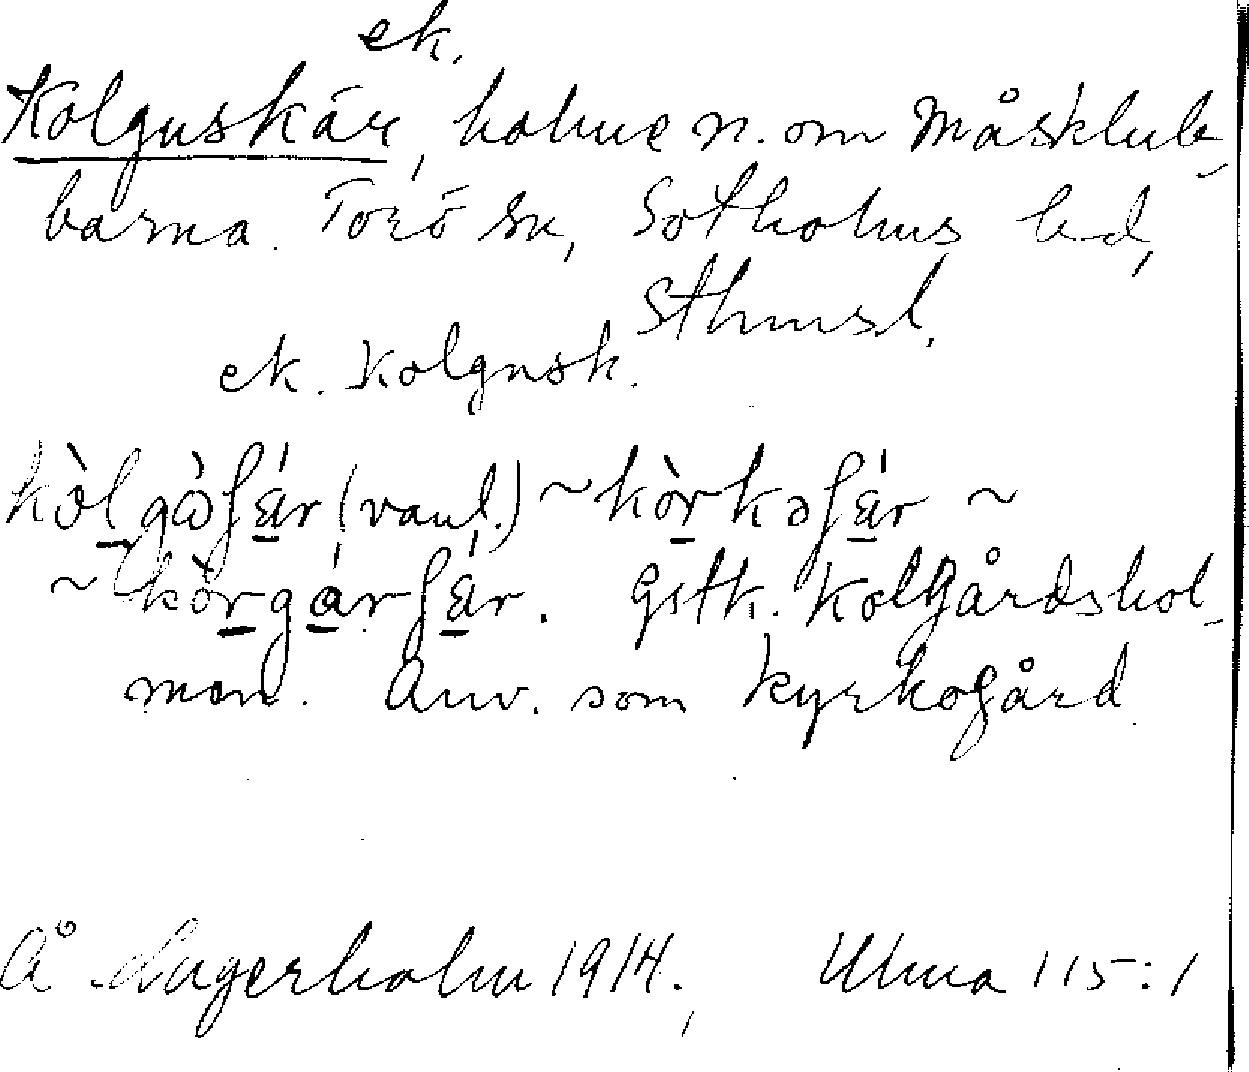 ek.
Kolguskär, holme n. om Måsklub-
barna. Torö sn, Sotholms hd,
Sthmsl.
ek. Kolgusk.
kòlgə̀ʃä́r (vanl.) ~ kòrkəʃä́r ~
~ kòrgárʃä́r. Gstk. Kolgårdshol-
men. Anv. som kyrkogård
Å Lagerholm 1914. Ulma 115:1